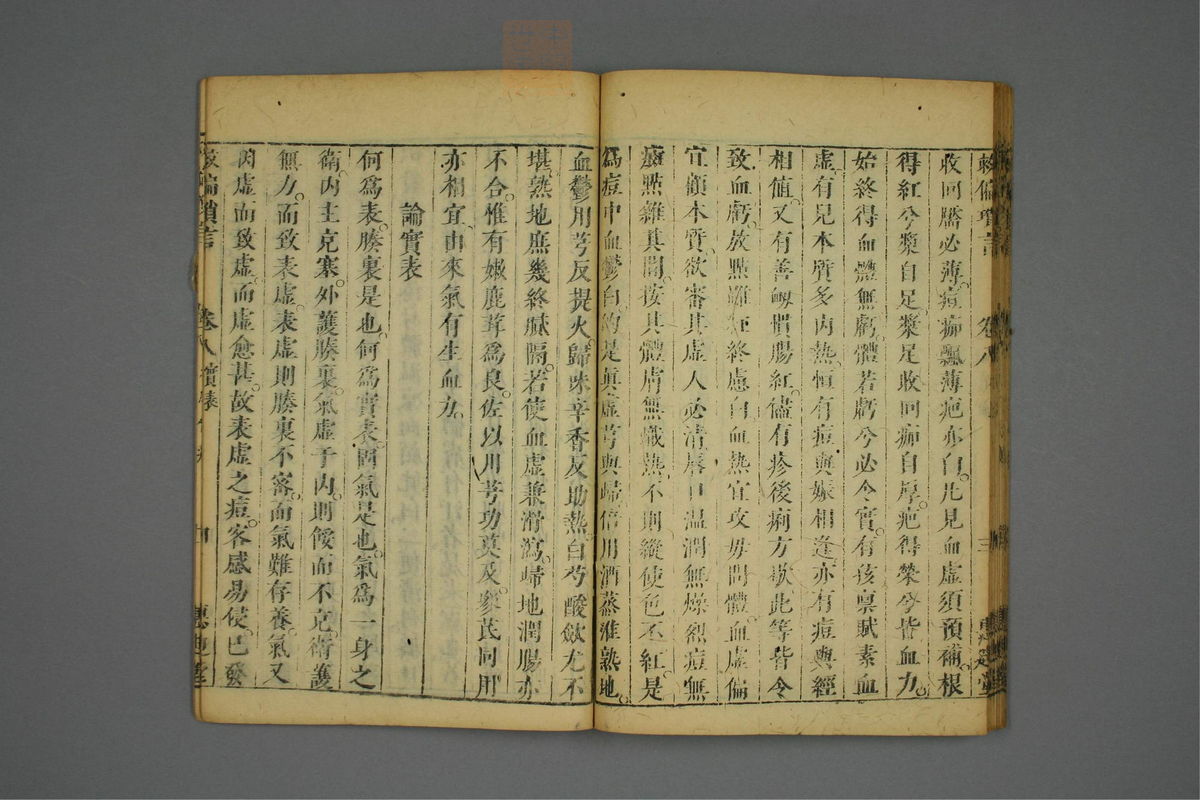 救偏瑣言 卷八 三
收回靨必薄痘痂飄薄疤亦白凡見血虛須預補根
得紅兮漿自足漿足收回痂自厚疤得榮兮皆血力
始終得血體無虧體若虧兮必令實有孩稟賦素血
虛有兒本質多內熱恒有痘與娠相逢亦有痘與經
相值又有善衂慣腸紅儘有疹後痢方歇此等皆令
致血虧放點雖紅終慮白血熱宜攻毋問體血虛偏
宜顧本質欲審其虛人必清唇口溫潤無燥烈痘無
瘢點雜其間按其體膚無熾熱不則縱使色不紅是
為痘中血鬱白的是真虛芎與歸倍用酒蒸淮熟地
血鬱用芎反提火歸味辛香反助熱白芍酸斂尤不
堪熟地庶幾終膩隔若使血虛兼滑瀉歸地潤腸亦
不合惟有嫩鹿茸為良佐以用芎功莫及參芪同用
亦相宜由來氣有生血力
論實表
何為表腠裏是也何為實表固氣是也氣為一身之
衛內主克塞外護腠裏氣虛于內則餒而不克衛護
無力而致表虛表虛則腠裏不密而氣難存養氣又
因虛而致虛而虛愈甚故表虛之痘客感易侵已發
救偏瑣言 卷八 實錶 四 惠迪堂